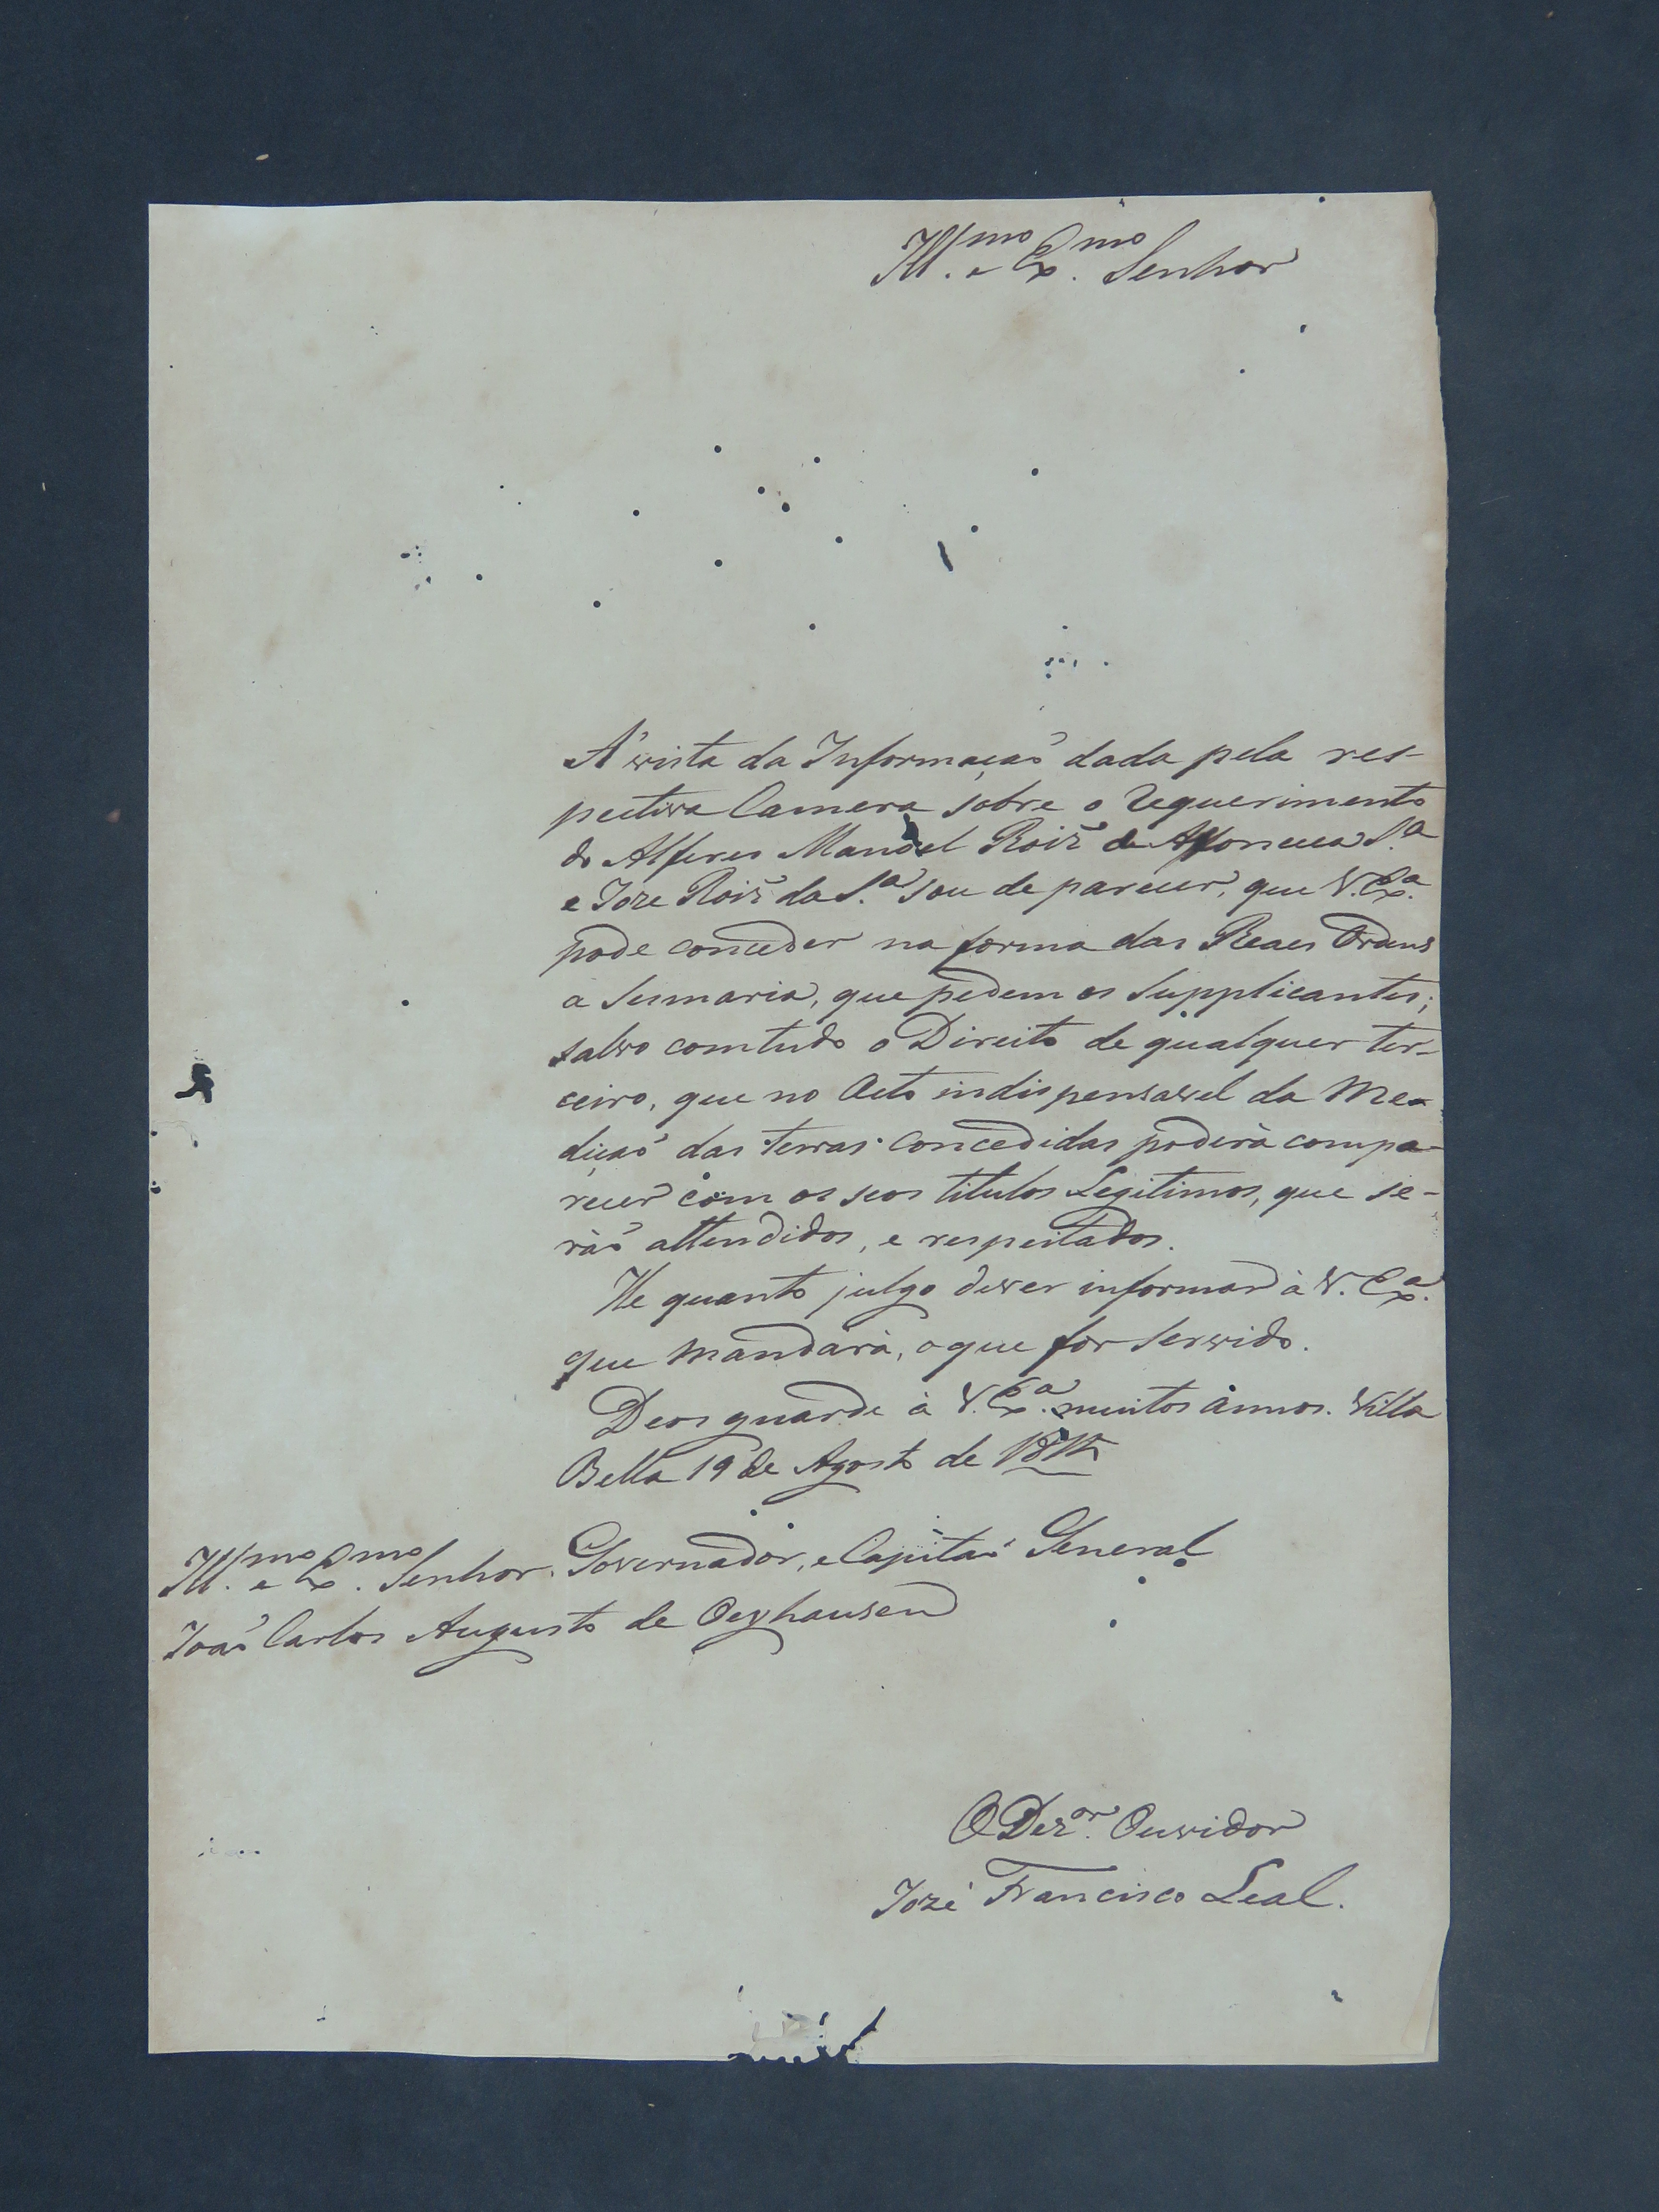 Ill.mo e Ex.mo Senhor
A' vista da Informação dada pela res-
pectiva Camera sobre o Requerimento
do Alferes Manoel Roiz de Affonceca S.a
e Joze Roiz da S.a sou de parecer, que V. Ex.a
pode conceder na forma das Reaes Ordens
a Sesmaria, que pedem os Supplicantes;
salvo comtudo o Direito de qualquer ter-
ceiro, que no Acto indispensavel da Me-
dição das terras concedidas poderà compa-
recer com os seos titulos Legitimos, que se-
ràõ attendidos, e respeitados.
He quanto julgo dever informar à V. Ex.a
que mandarà, o que for servido.
Deos guarde à V. Ex.a muitos annos. Villa
Bella 19 de Agosto de
Ill.mo e Ex.mo Senhor Governador, e Capitão General
João Carlos Augusto de Oeyhausen
O Dez.or Ouvidor
Jozé Francisco Leal.